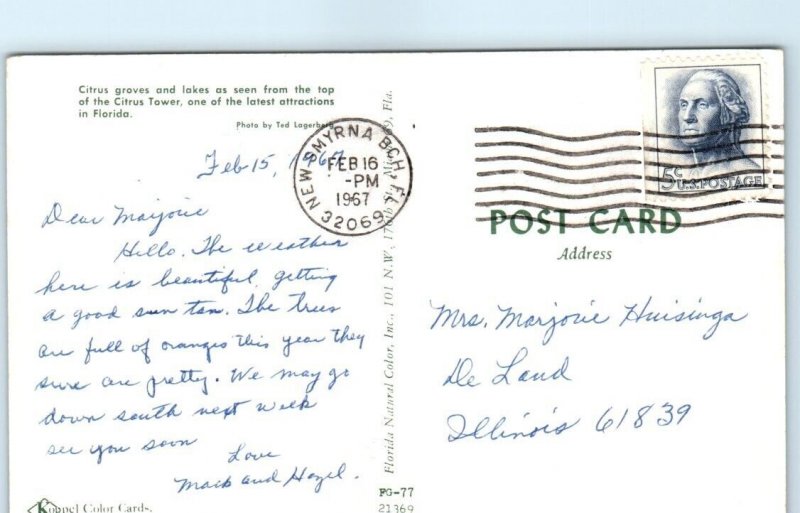 Citrus groves and lakes as seen from the top
of the Citrus Tower, one of the latest attractions
in Florida.
Photo by Ted Lagerberg
Feb 15, 1967
Dear Marjorie
Hello. The weather
here is beautiful, getting
a good sun tan. The trees
are full of oranges this year they
sure are pretty. We may go
down south next week
see you soon
Love
Mack and Hazel.
Koppel Color Cards.
NEW SMYRNA BCH., FL
FEB 16
-PM
1967
32069
Florida Natural Color, Inc., 101 N.W., Fla.
FG-77
21369
5c
U.S. POSTAGE
POST CARD
Address
Mrs. Marjorie Huisinga
De Land
Illinois 61839